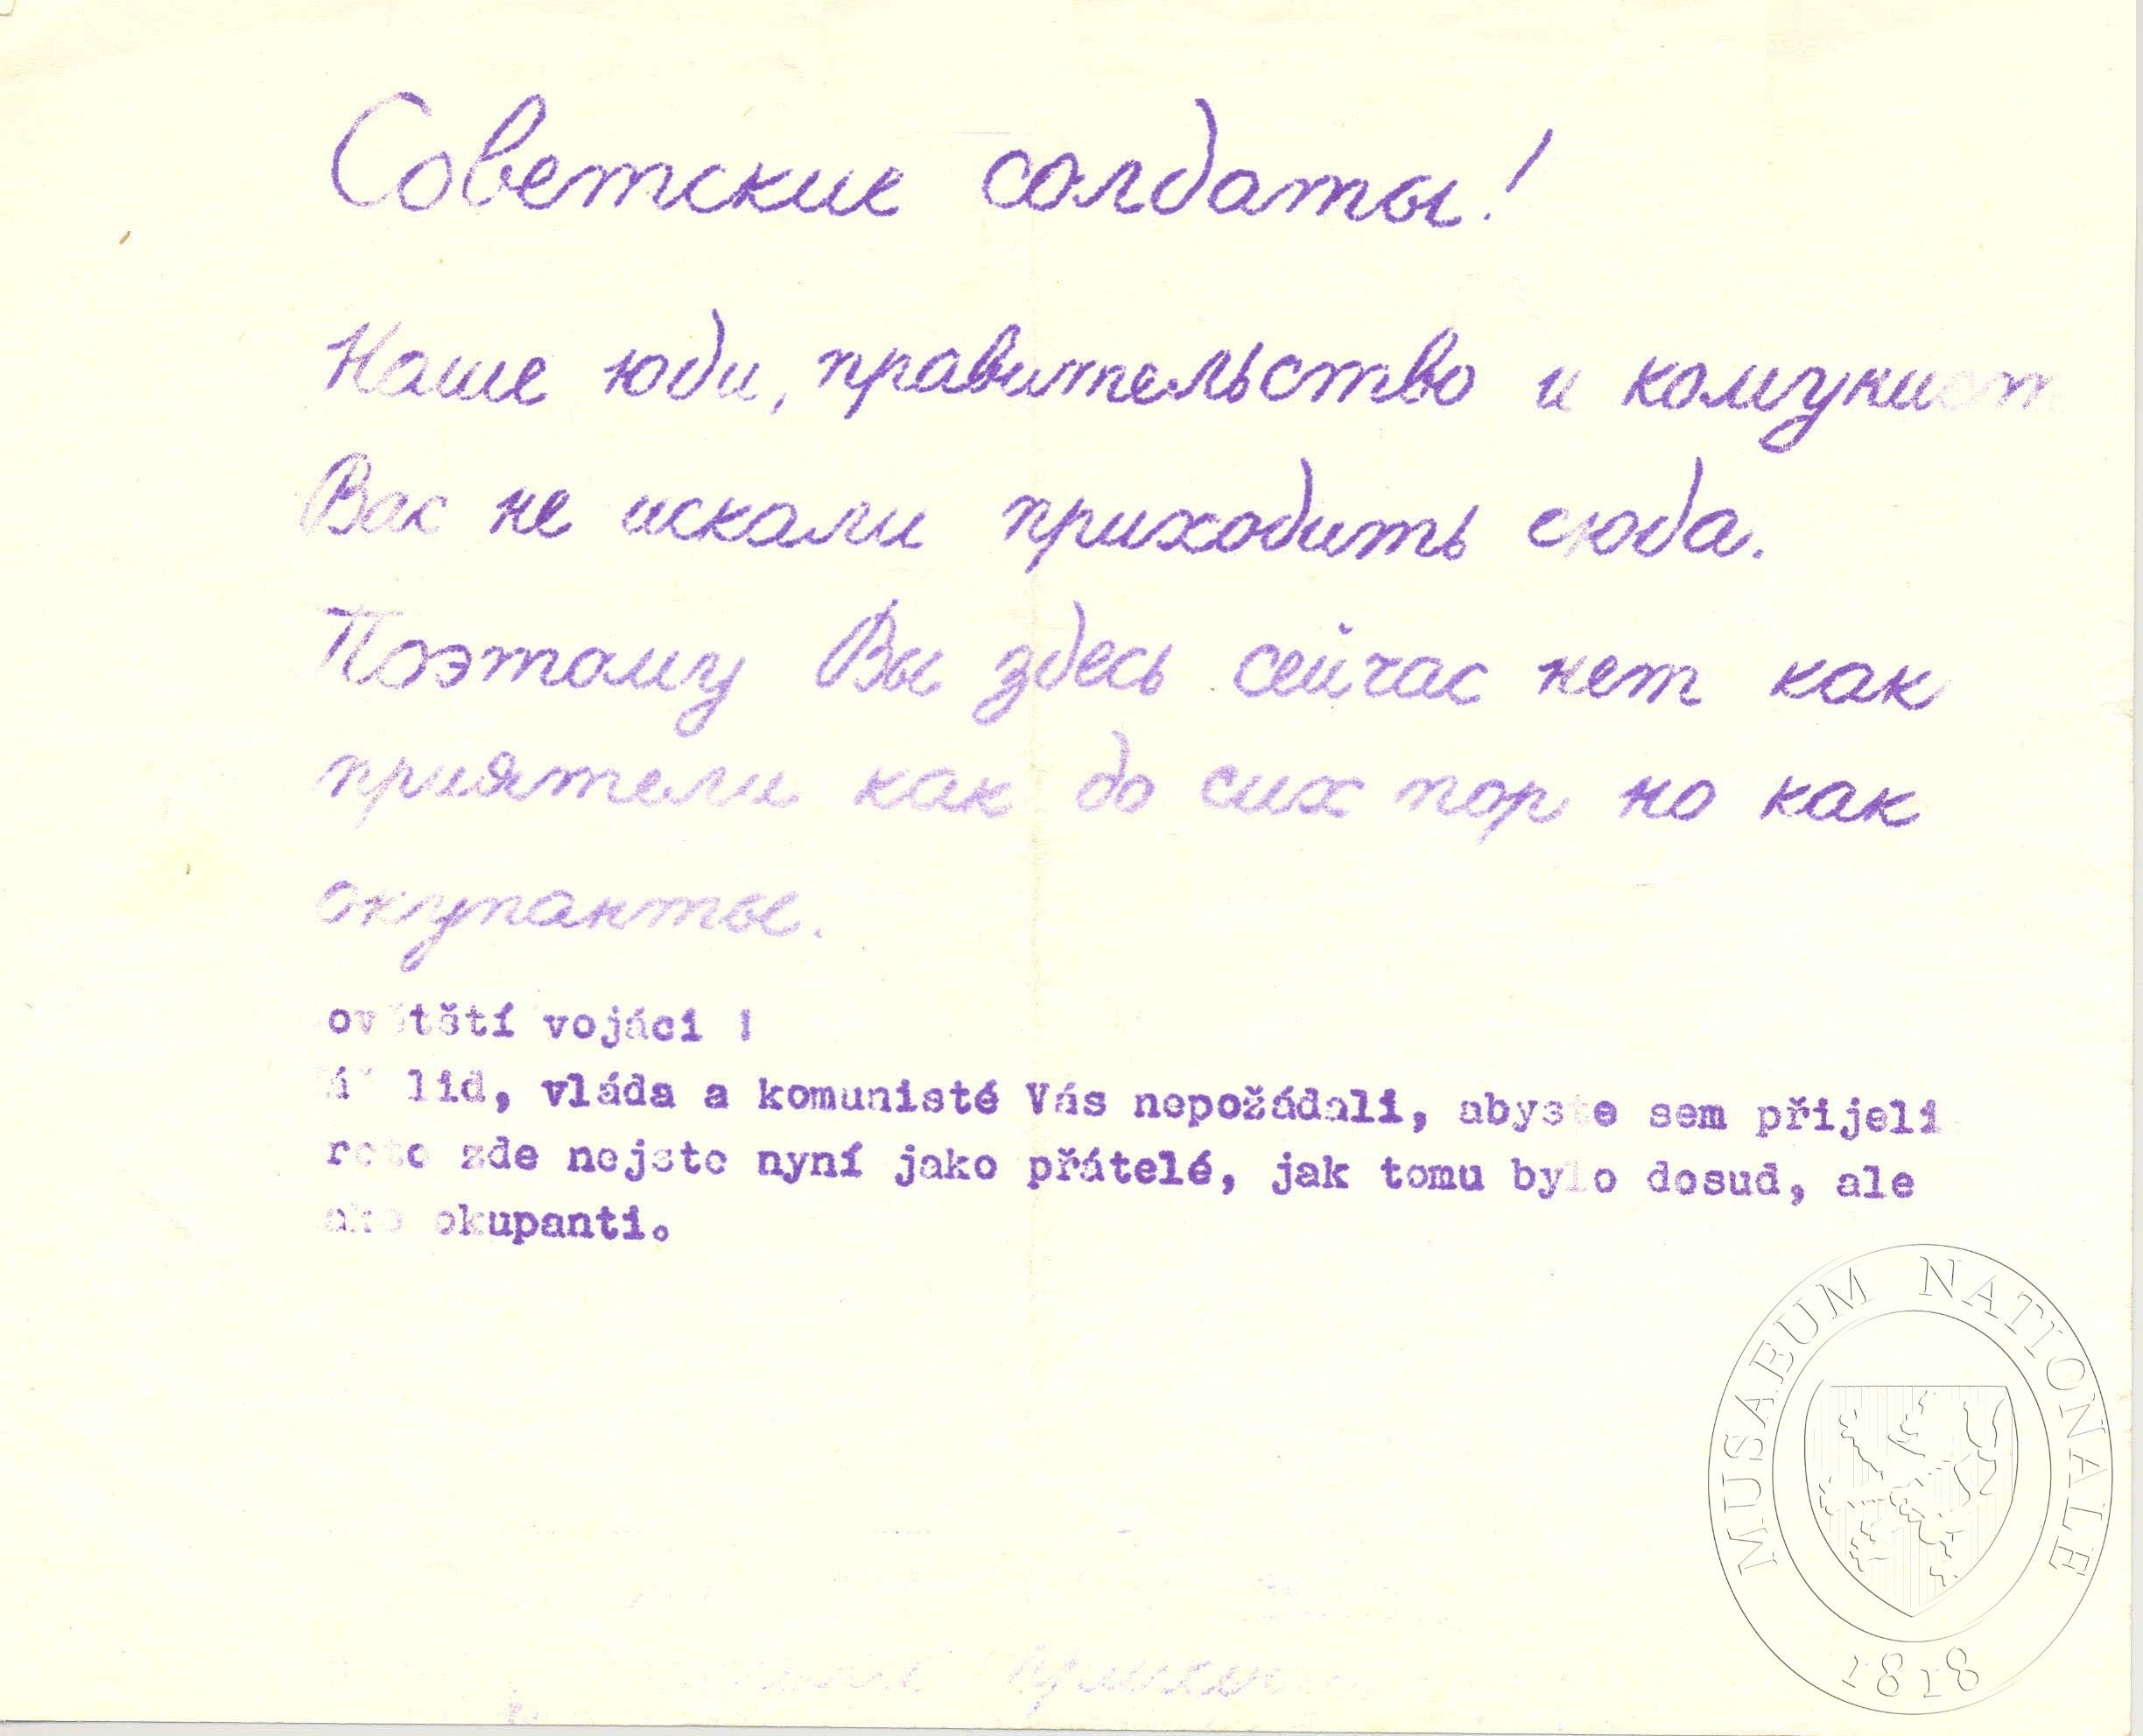 Советские солдаты!
Наше юди, правительство и комунист
Вас не искали приходить сюда.
Поэтому Вы здесь сейчас нет как
приятели как до сих пор но как
окупанты.
ovětští vojáci !
lid, vláda a komunisté Vás nepožádali, abyste sem přijeli
roto zde nejste nyní jako přátelé, jak tomu bylo dosud, ale
ako okupanti.
MUSAEUM NATIONALE
1818